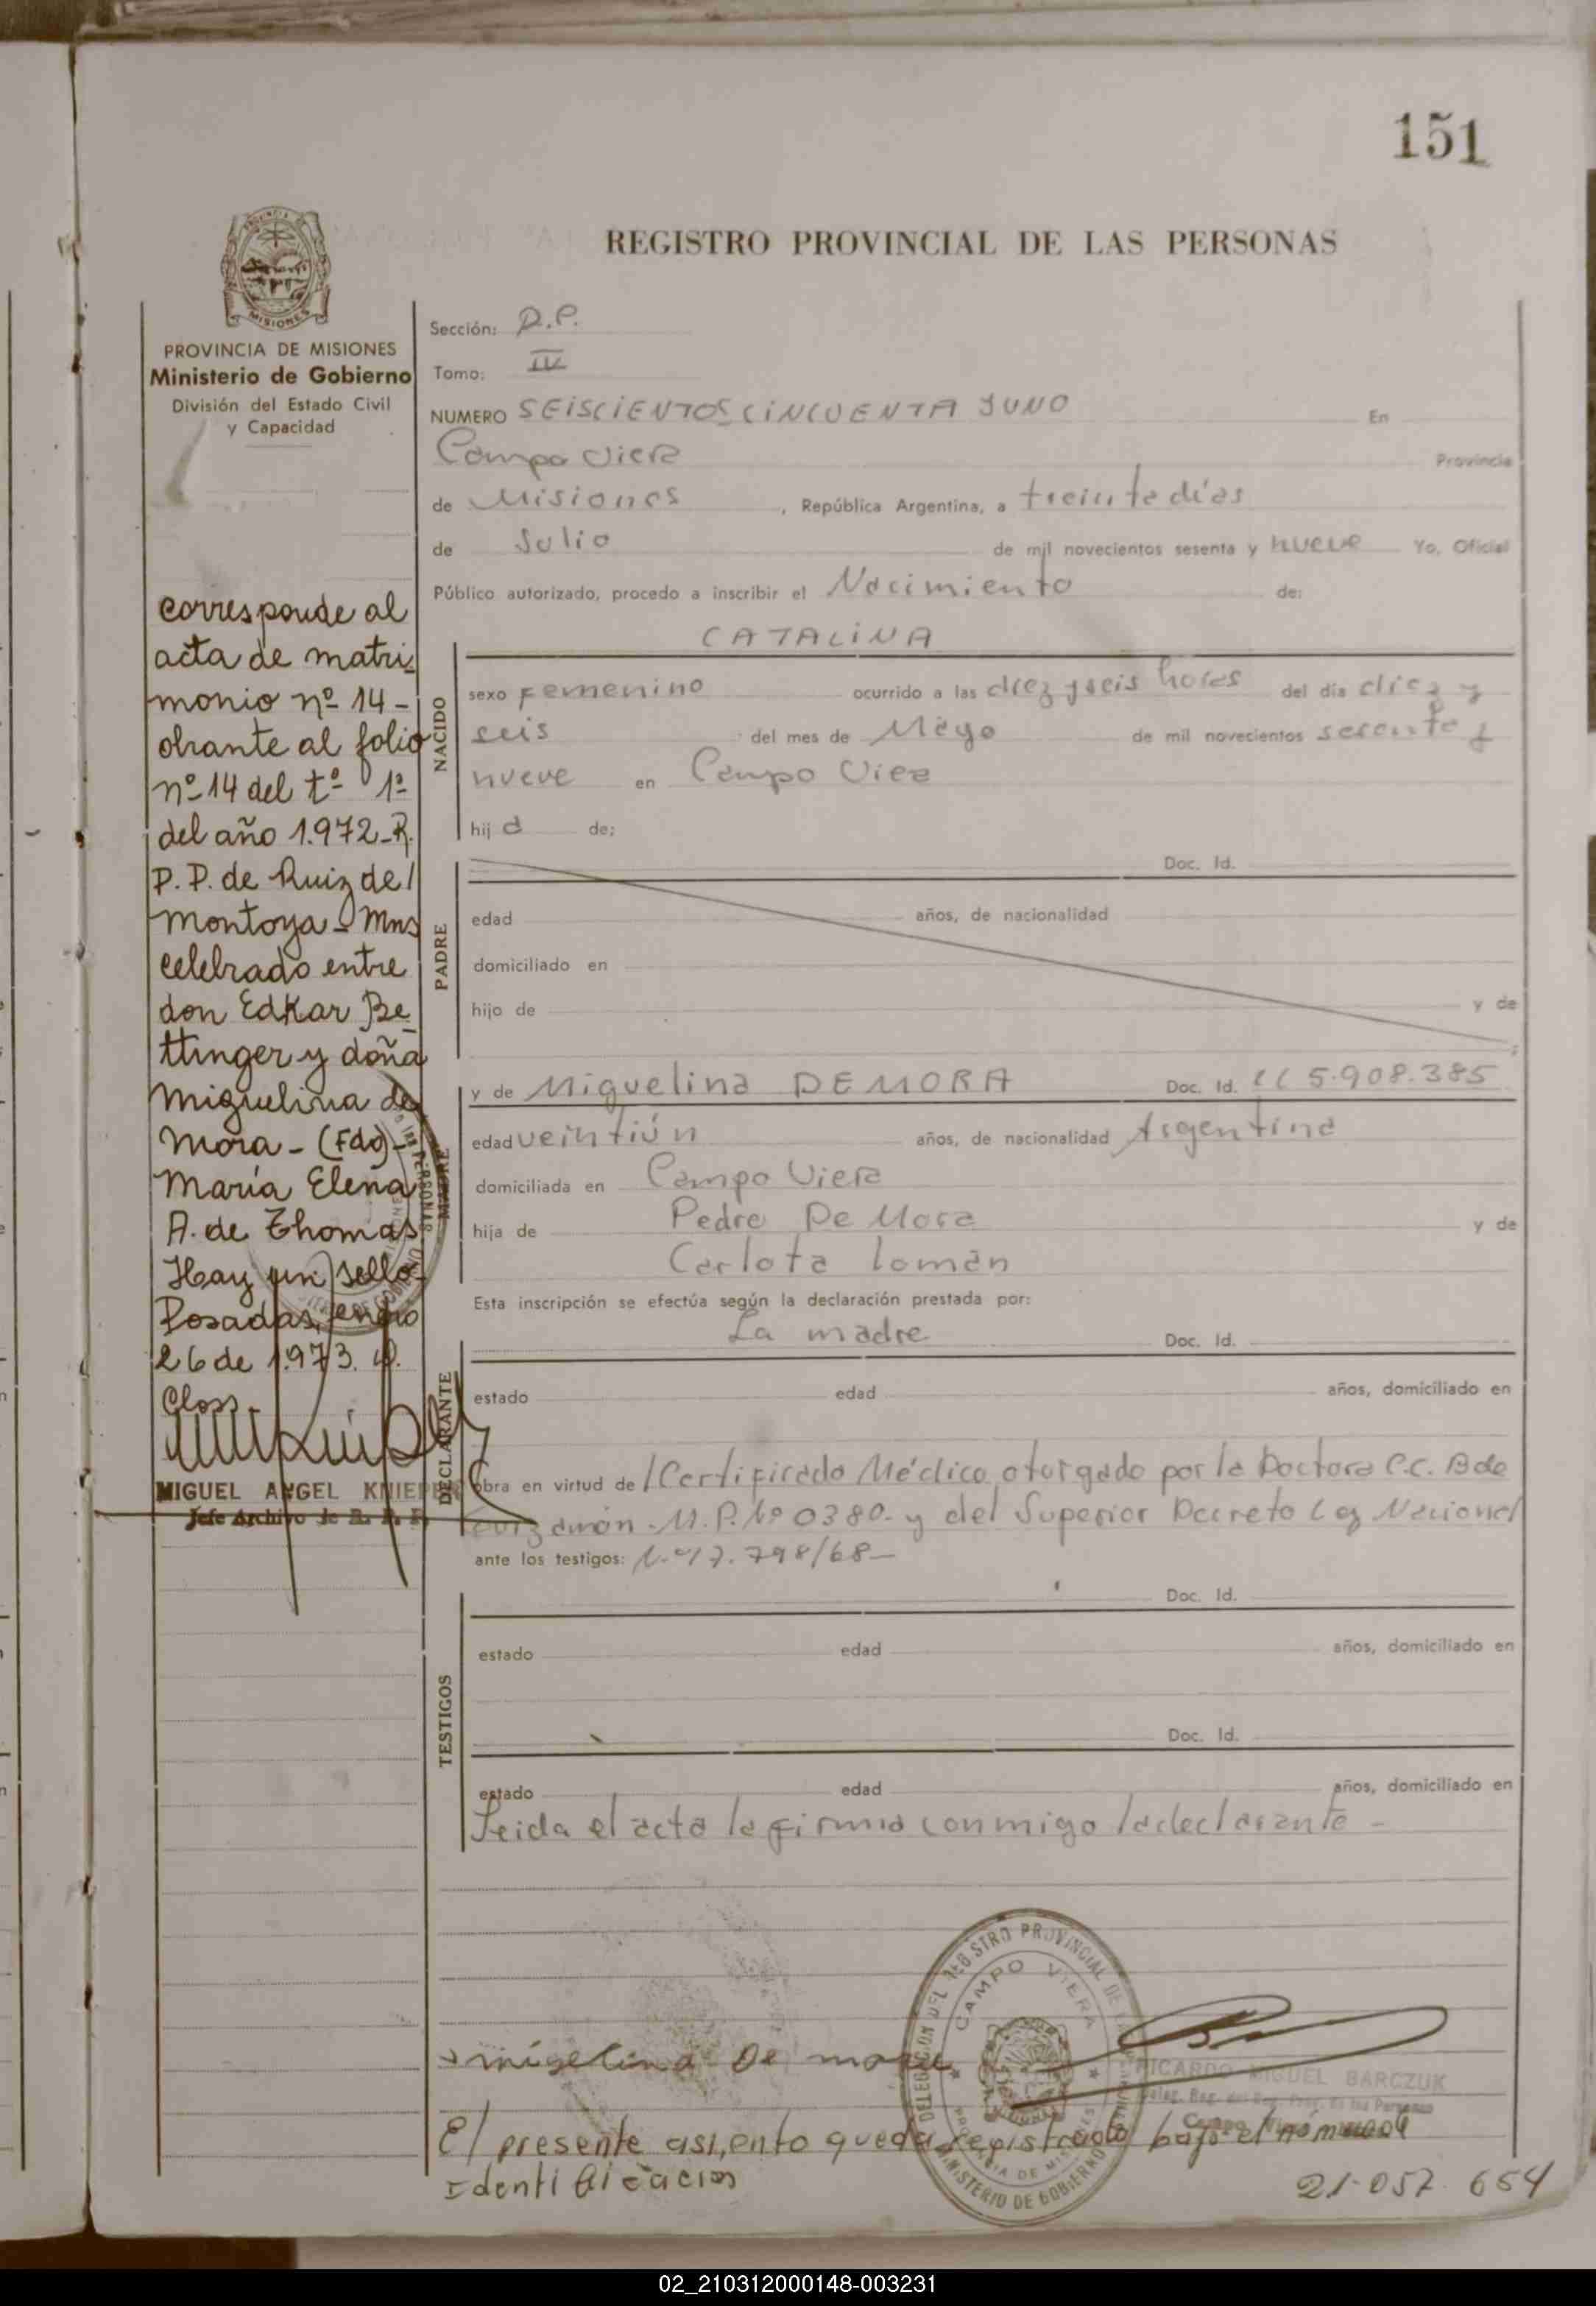 151
REGISTRO PROVINCIAL DE LAS PERSONAS
MISIONES
PROVINCIA DE MISIONES
Ministerio de Gobierno
División del Estado Civil
y Capacidad
Sección: D.P.
Tomo: IV
NUMERO SEISCIENTOS CINCUENTA YUNO En
Campo Viera Provincia
de Misiones, República Argentina, a treinta días
de Julio de mil novecientos sesenta y nueve Yo, Oficial
Público autorizado, procedo a inscribir el Nacimiento de:
CATALINA
NACIDO
sexo Femenino ocurrido a las diez y seis horas del día diez y
seis del mes de Mayo de mil novecientos sesenta y
nueve en Campo Viera
hij a de;
PADRE
Doc. Id.
edad años, de nacionalidad
domiciliado en
hijo de y de
MADRE
y de Miguelina DEMORA Doc. Id. LC 5.908.385
edad veintiún años, de nacionalidad Argentina
domiciliada en Campo Viera
hija de Pedro De Mora y de
Carlota Loman
Esta inscripción se efectúa según la declaración prestada por:
La madre Doc. Id.
DECLARANTE
estado edad años, domiciliado en
Obra en virtud de l Certificado Médico otorgado por la Doctora C.C. B de
M.P. Nº 0380- y del Superior Decreto Ley Nacional
ante los testigos: N.º 17.798/68-
Doc. Id.
TESTIGOS
estado edad años, domiciliado en
Doc. Id.
estado edad años, domiciliado en
Leida el acta la firma conmigo la declarante -
corresponde al
acta de matri-
monio nº 14-
obrante al folio
nº 14 del tº 1º
del año 1.972-R.
P.P. de Ruiz de
Montoya - Mns
celebrado entre
don Edkar Be-
ttinger y doña
Miguelina de
Mora - (Fdo)-
María Elena
A. de Thomas
Hay un sello-
Posadas, enero
26 de 1973.
Closs-
MIGUEL ANGEL KNIEPER
Jefe Archivo de R. P. P.
migelina De mora
DELEGACION DEL REGISTRO PROVINCIAL DE
CAMPO VIERA
PROVINCIA DE MISIONES
MINISTERIO DE GOBIERNO
RICARDO MIGUEL BARCZUK
El presente asiento queda registrado bajo el número de
Identificacion
21-057.654
02_210312000148-003231